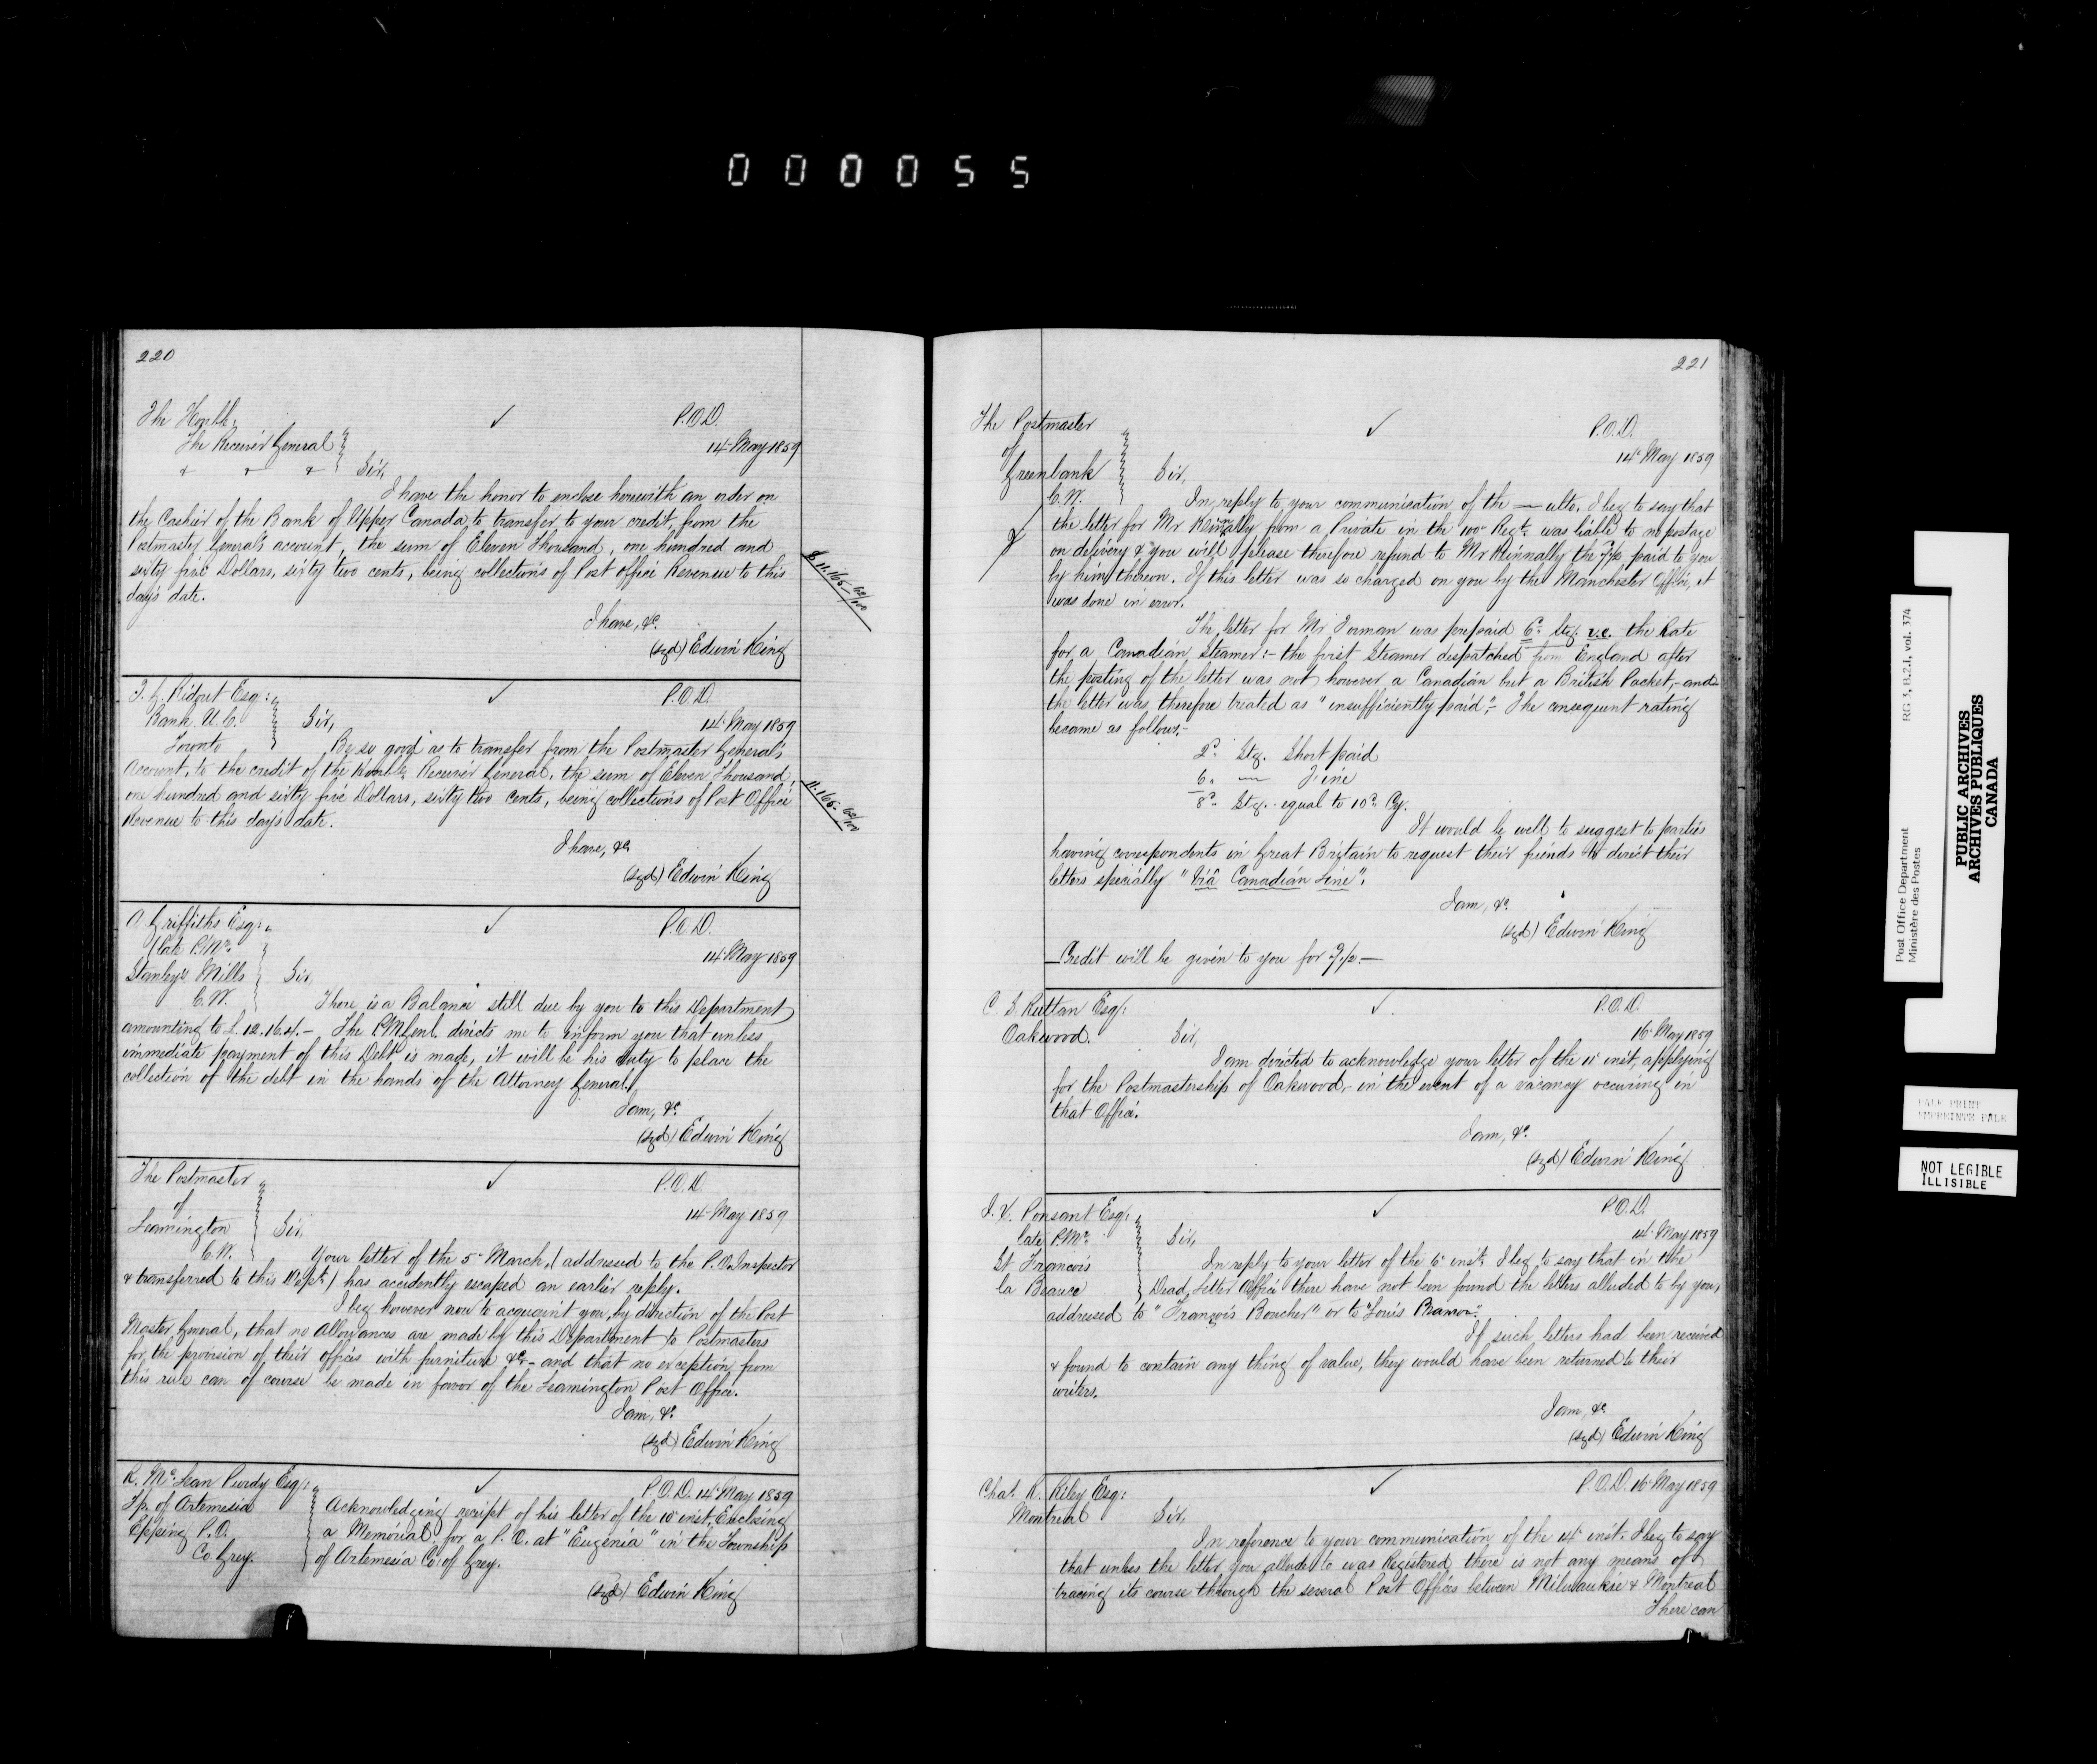 000055
220
The Honble.
The Receiver General
P.O.D.
14 May 1859
Sir,
I have the honor to enclose herewith an order on
the Cashier of the Bank of Upper Canada, to transfer to your credit, from the
Postmaster General's account, the sum of Eleven Thousand, one hundred and
sixty five Dollars, sixty two cents, being collections of Post Office Revenue to this
day's date.
$ 11.165 62/100
I have, &c.
(sgd) Edwin King
T. G. Ridout Esq:
Bank U.C.
Toronto
P.O.D.
14 May 1859
Sir,
Be so good as to transfer from the Postmaster General's
Account, to the credit of the Honble. Receiver General, the sum of Eleven Thousand,
one hundred and sixty five Dollars, sixty two cents, being collections of Post Office
Revenue to this day's date.
11.165 62/100
I have, &c
(sgd) Edwin King
A Griffiths Esq:
late P.Mr.
Stanley's Mills
C.W.
P.O.D.
14 May 1859
Sir,
There is a Balance still due by you to this Department
amounting to £.12.16.4.- The PMGenl. directs me to inform you that unless
immediate payment of this Debt is made, it will be his duty to place the
collection of the debt in the hands of the Attorney General.
I am, &c.
(sgd) Edwin King
The Postmaster
of
Leamington
C.W.
P.O.D.
14 May 1859
Sir,
Your letter of the 5 March, (addressed to the P.O. Inspector
& transferred to this Dept.) has accidently escaped an earlier reply.
I beg however now to acquaint you, by direction of the Post
Master General, that no allowances are made by this Department to Postmasters
for the provision of their offices with furniture &c - and that no exception from
this rule can of course be made in favor of the Leamington Post Office.
I am, &c.
(sgd) Edwin King
R. McLean Purdy Esq:
Tp. of Artemesia
Epping P.O.
Co. Grey.
P.O.D. 14 May 1859
Acknowledging receipt of his letter of the 10 inst. Enclosing
a Memorial, for a P.O. at "Eugenia" in the Township
of Artemesia Co. of Grey.
(sgd) Edwin King
221
The Postmaster
of
Greenbank
C.W.
P.O.D.
14 May 1859
Sir,
In reply to your communication of the — ulto. I beg to say that
the letter for Mr from a Private in the 100 Regt. was liable to no postage
on delivery & you will please therefore refund to Mr the paid to you
by him thereon. If this letter was so charged on you by the Manchester Office, it
was done in error.
The letter for Mr Forman was prepaid 6d Stg. i.e. the Rate
for a Canadian Steamer:- the first Steamer despatched from England after
the posting of the letter was not however a Canadian but a British Packet,- and
the letter was therefore treated as "insufficiently paid". The consequent rating
became as follows,-
2d. Stg. Short paid
6. — Fine
8d. Stg. equal to 10d. Cy.
It would be well to suggest to parties
having correspondents in Great Britain to request their friends to direct their
letters specially "Via Canadian Line".
I am, &c.
(sgd) Edwin King
Credit will be given to you for
C. S. Ruttan Esq:
Oakwood.
P.O.D.
16 May 1859
Sir,
I am directed to acknowledge your letter of the 11 inst, applying
for the Postmastership of Oakwood,- in the event of a vacancy occuring in
that Office.
I am, &c.
(sgd) Edwin King
Ponsant Esq:
late P.Mr.
St Francois
la Beauce
P.O.D.
14 May 1859
Sir,
In reply to your letter of the 6 inst. I beg to say that in the
Dead Letter Office there have not been found the letters alluded to by you,
addressed to "François Boucher" or to "Louis
If such letters had been received
& found to contain any thing of value, they would have been returned to their
writers.
I am, &c
(sgd) Edwin King
Chas. R. Riley Esq:
Montreal
P.O.D. 16 May 1859
Sir,
In reference to your communication of the 14 inst. I beg to say
that unless the letter you allude to was Registered there is not any means of
tracing its course through the several Post Offices between Milwaukie & Montreal
There can
Post Office Department
Ministère des Postes
RG 3, B.2.I, vol. 374
PUBLIC ARCHIVES
ARCHIVES PUBLIQUES
CANADA
PALE PRINT
EMPREINTE PALE
NOT LEGIBLE
ILLISIBLE